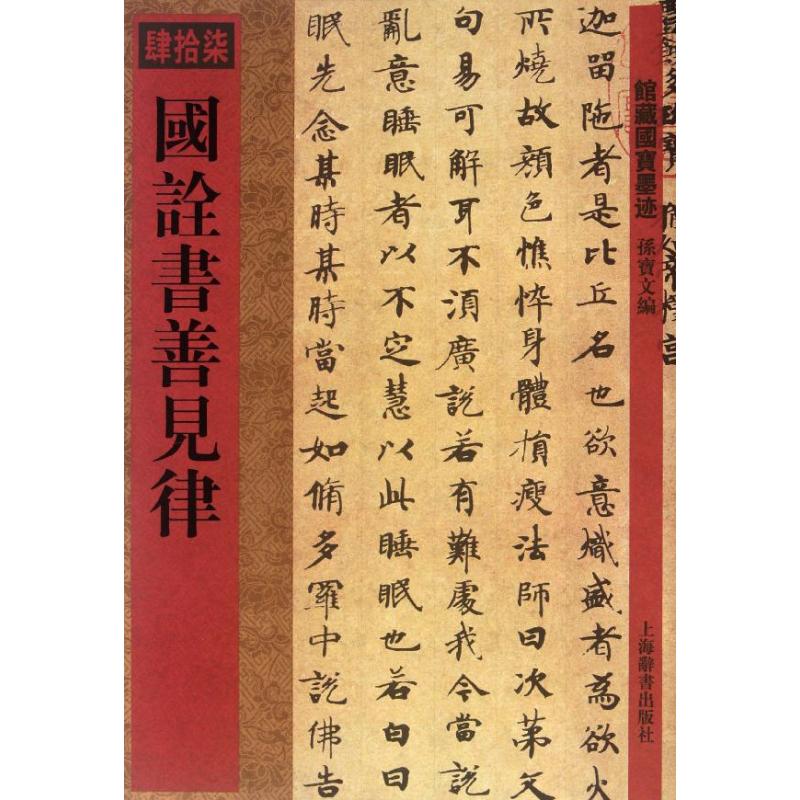 肆拾柒
國詮書善見律
迦留陁者是比丘名也欲意熾盛者為欲火
所燒故顏色憔悴身體損瘦法師曰次第文
句易可解耳不須廣說若有難處我今當說
亂意睡眠者以不定慧以此睡眠也若白日
眠先念某時某時當起如脩多羅中說佛告
館藏國寶墨迹
孫寶文編
上海辭書出版社